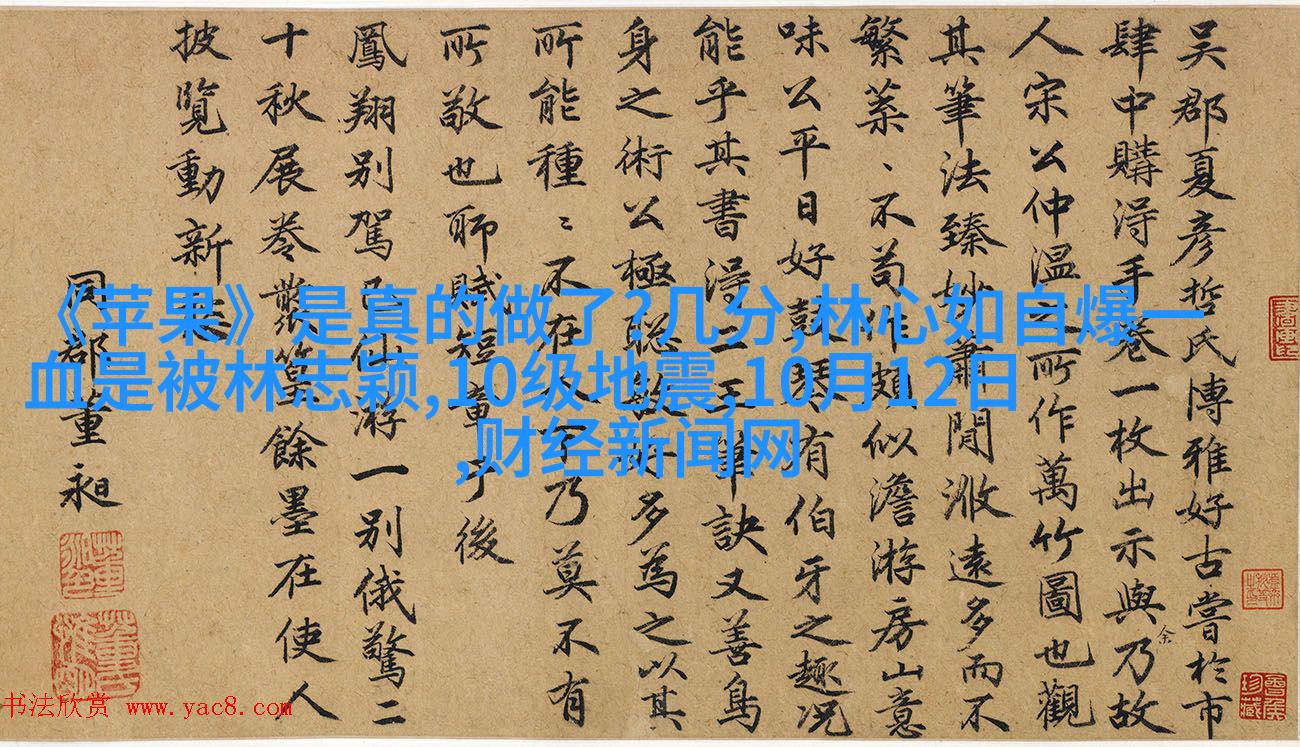 吴郡夏彦哲氏博雅好古嘗於市
肆中購淂手卷一枚出示與余乃故
人宋公仲温之所作萬竹圖也觀
其筆法臻妙蕭閒遠多而不
繁葉、不苟作頗似澹游房山意
味公平日好鼓琴有伯牙之趣况
能乎其書淂二王筆訣又善鳥
身之術公極聪故好多為之以其
所能種〻不在人下乃莫不有
所敬也聊賦短章于後
鳳翔别駕已仙游一别俄驚二
十秋展卷餘墨在使人
披覽動新
同郡董昶
《苹果》是真的做了?几分,林心如自爆一
血是被林志颖,10级地震,10月12日
,财经新闻网
书法欣赏 www.yac8.com